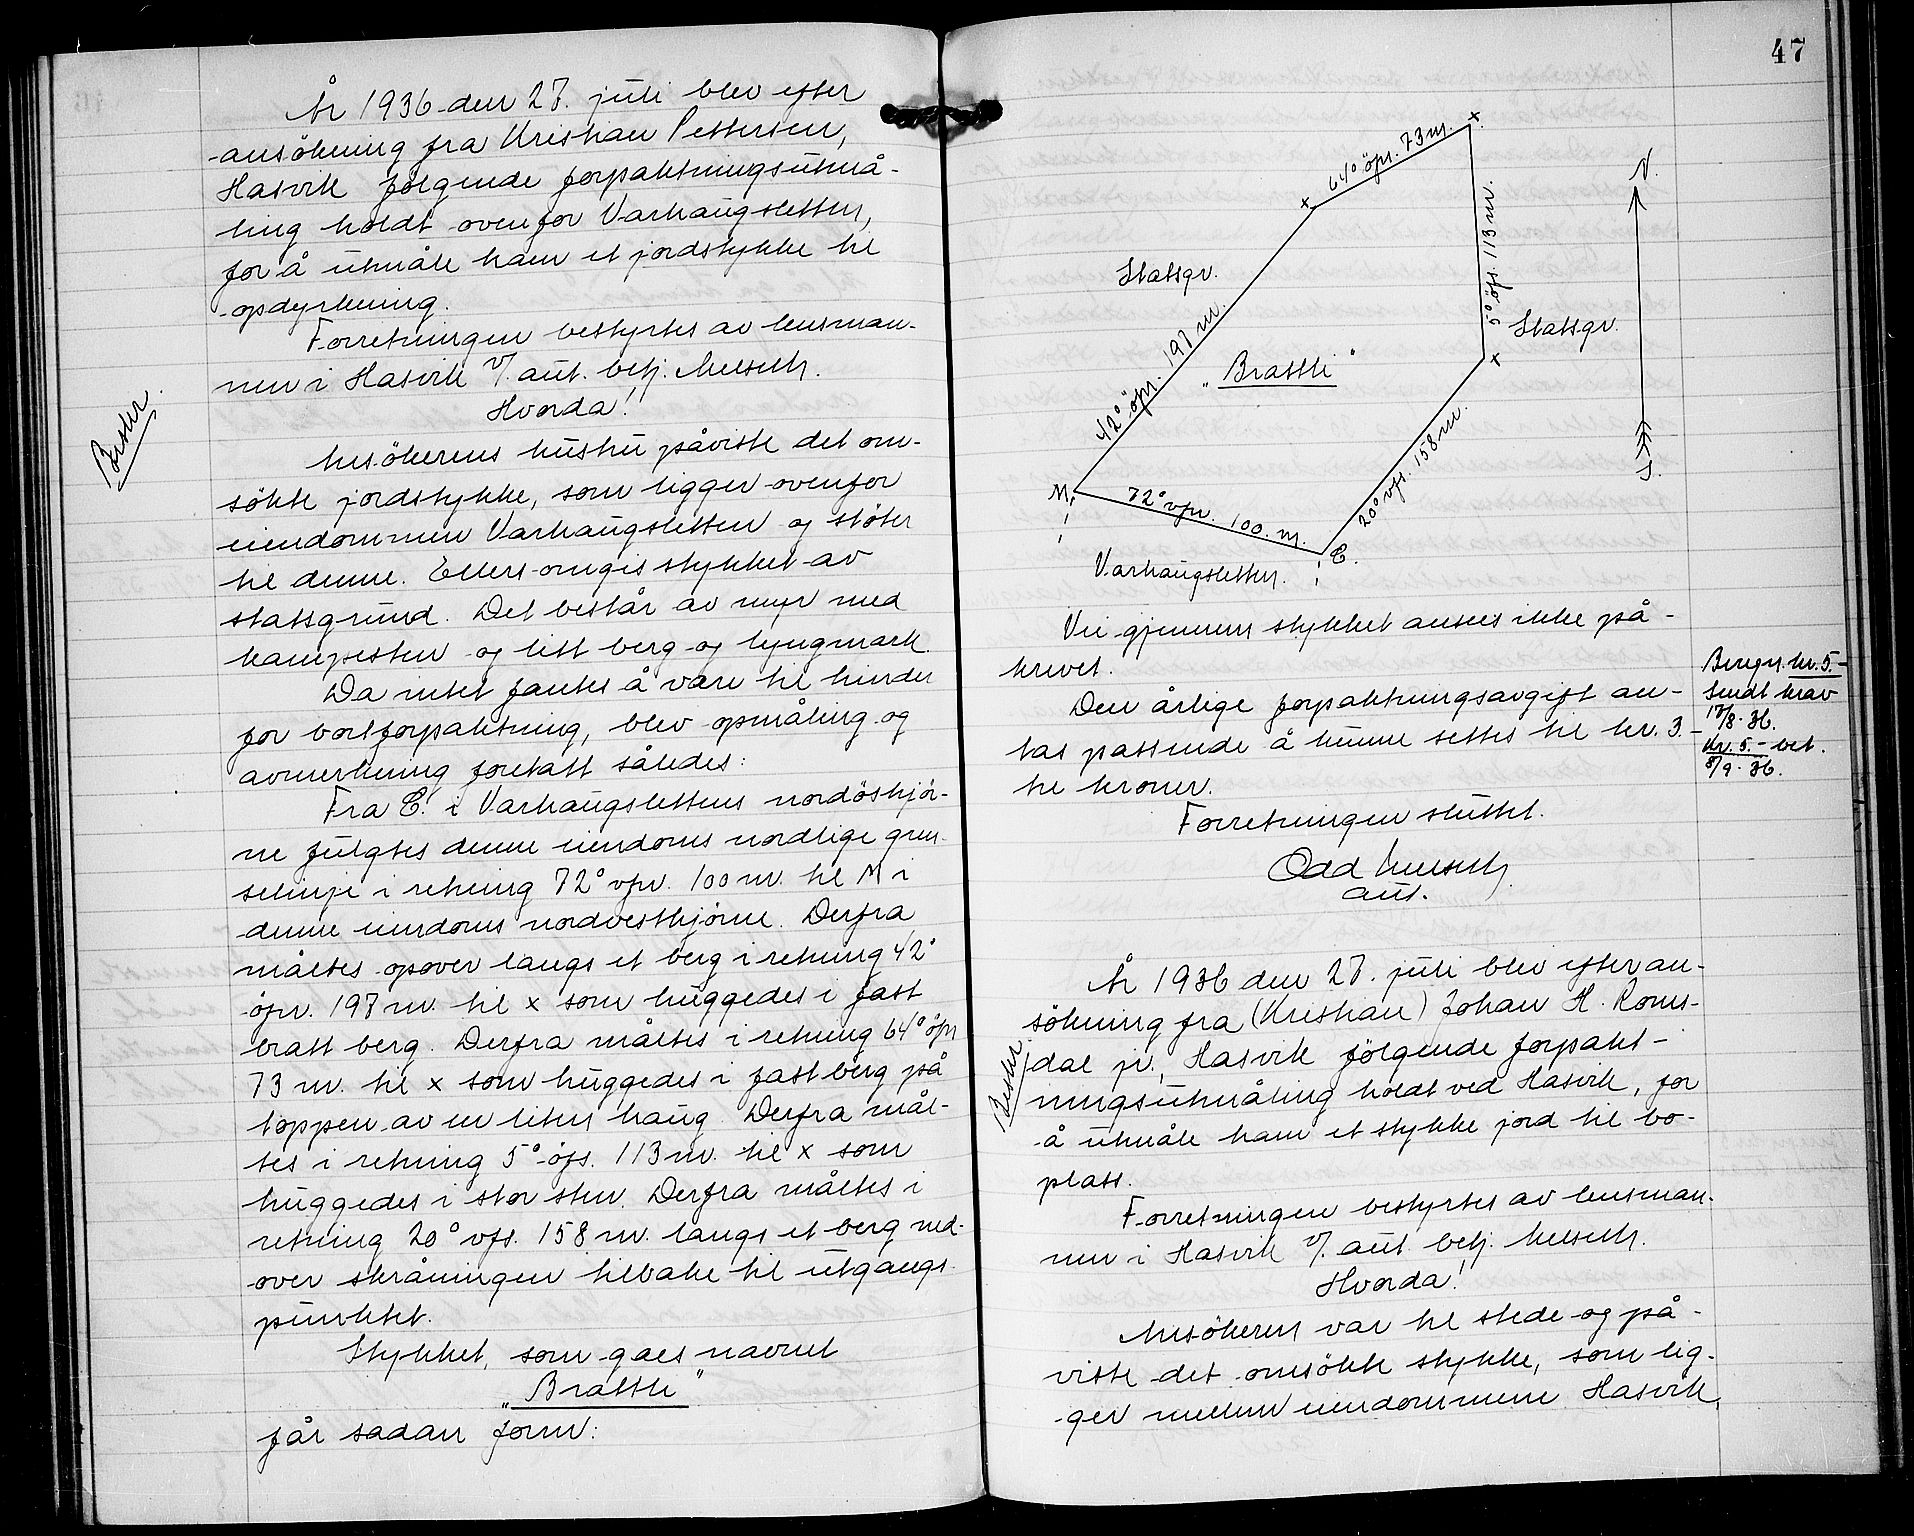 År 1936 den 27. juli blev efter
ansökning fra Kristian Pettersen,
Hasvik følgende forpaktningsutmå-
ling holdt ovenfor Varhaugsletten,
for å utmåle ham et jordstykke til
opdyrkning.
Forretningen bestyrtes av lensman-
nen i Hasvik v/. aut. betj. Melseth.
Hvorda!
Beskr.
Ansökerens hustru påviste det om-
sökte jordstykke, som ligger ovenfor
eiendommen Varhaugsletten og stöter
til denne. Ellers omgis stykket av
statsgrund. Det består av myr med
kampesten og litt berg og lyngmark.
Da intet fantes å være til hinder
for bortforpaktning, blev opmåling og
avmerkning foretatt således:
Fra E. i Varhaugslettens nordöstjör-
ne fulgtes denne eiendoms nordlige gren-
selinje i retning 72° vpn. 100 m. til M i
denne eiendoms nordvesthjörne. Derfra
måltes opover langs et berg i retning 42°
öpn. 197 m. til x som huggedes i fast
bratt berg. Derfra måltes i retning 64° öpn
73 m. til x som huggedes i fast berg på
toppen av en liten haug. Derfra mål-
tes i retning 5° öfs. 113 m. til x som
huggedes i stor sten. Derfra måltes i
retning 20° vfs. 158 m. langs et berg ned-
over skråningen tilbake til utgangs-
punktet.
Stykket, som gaes navnet
"Brattli"
får sadan form:
47
64° öpn. 73 m.
x
x
N.
5° öfs. 113 m.
Statsgr.
42° öpn. 197 m.
"Brattli"
Statsgr.
x
20° vfs. 158 m.
S.
M.
72° vpn. 100. m.
E.
Varhaugsletten.
Vei gjennem stykket ansees ikke på-
krevet.
Den årlige forpaktningsavgift an-
tas passende å kunne settes til kr. 3.-
tre kroner.
Beregn. kr. 5.-
Sendt krav
17/8-36.
Kr. 5.- bet.
8/9-36.
Forretningen sluttet.
Odd Melseth
aut.
År 1936 den 27. juli blev efter an-
sökning fra (Kristian) Johan H. Roms-
dal jr., Hasvik følgende forpakt-
ningsutmåling holdt ved Hasvik, for
Beskr.
å utmåle ham et stykke jord til bo-
plass.
Forretningen bestyrtes av lensman-
nen i Hasvik v/. aut. betj. Melseth.
Hvorda!
Ansökeren var til stede og på-
viste det omsökte stykke, som lig-
ger mellem eiendommene Hasvik,